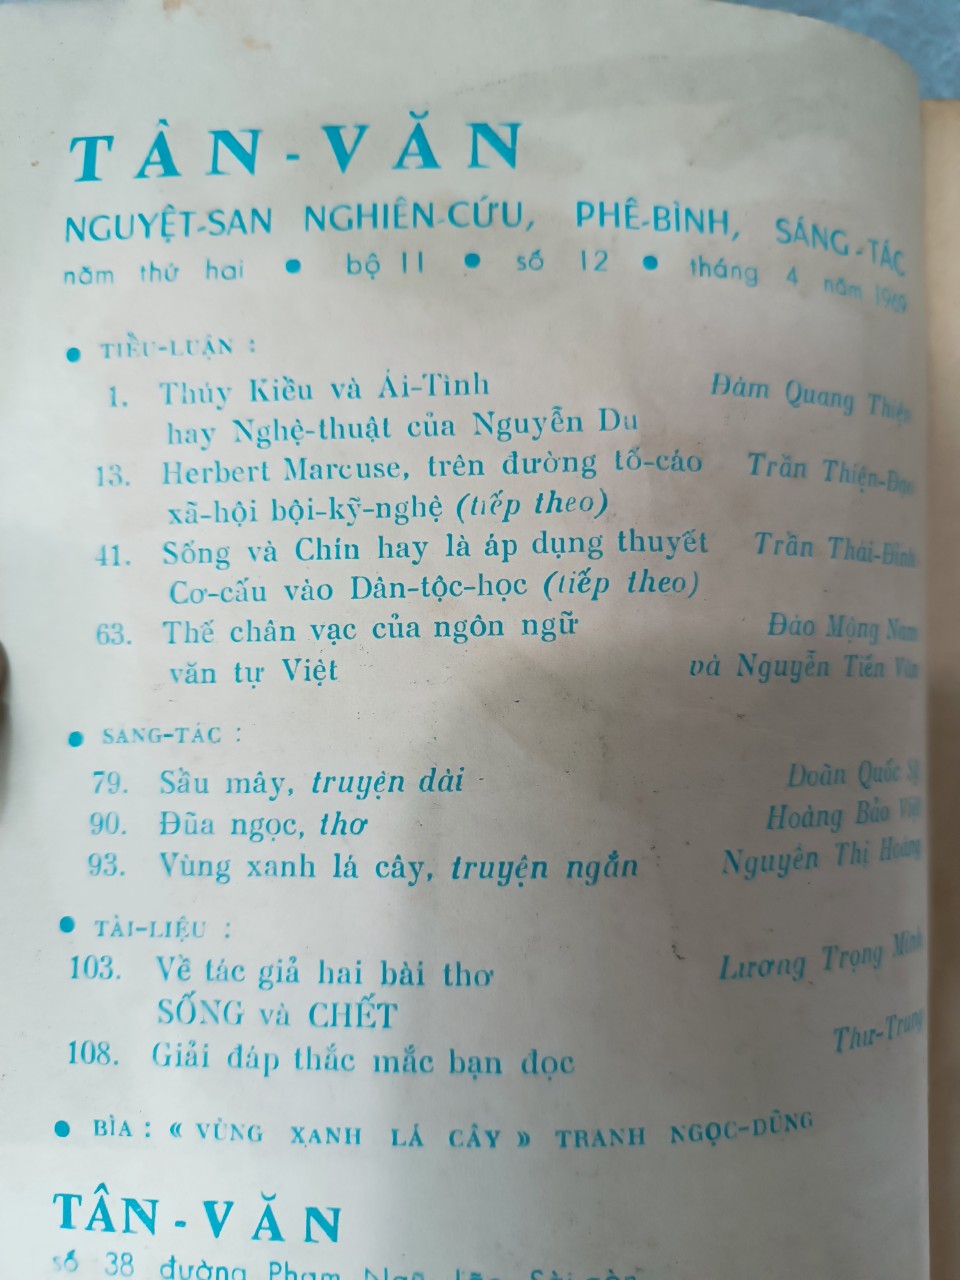 TÂN - VĂN
NGUYỆT-SAN NGHIÊN-CỨU, PHÊ-BÌNH, SÁNG-TÁC
năm thứ hai • bộ II • số 12 • tháng 4 năm 1969
• TIỂU-LUẬN :
1. Thúy Kiều và Ái-Tình Đàm Quang Thiện
hay Nghệ-thuật của Nguyễn Du
13. Herbert Marcuse, trên đường tố-cáo Trần Thiện-Đạo
xã-hội bội-kỹ-nghệ (tiếp theo)
41. Sống và Chín hay là áp dụng thuyết Trần Thái-Đỉnh
Cơ-cấu vào Dân-tộc-học (tiếp theo)
63. Thế chân vạc của ngôn ngữ Đào Mộng Nam
văn tự Việt và Nguyễn Tiến Văn
• SÁNG-TÁC :
79. Sầu mây, truyện dài Doãn Quốc Sỹ
90. Đũa ngọc, thơ Hoàng Bảo Việt
93. Vùng xanh lá cây, truyện ngắn Nguyễn Thị Hoàng
• TÀI-LIỆU :
103. Về tác giả hai bài thơ Lương Trọng Minh
SỐNG và CHẾT
108. Giải đáp thắc mắc bạn đọc Thư-Trung
• BÌA : « VÙNG XANH LÁ CÂY » TRANH NGỌC-DŨNG
TÂN - VĂN
số 38 đường Phạm